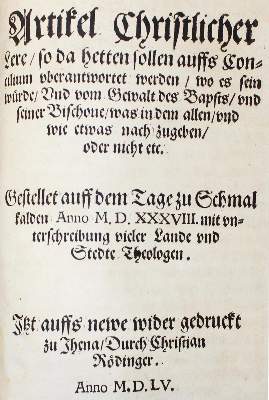 Artikel Christlicher
Lere / so da hetten sollen auffs Con-
cilium vberantwortet werden / wo es sein
würde / Vnd vom Gewalt des Bapsts / vnd
seiner Bischoue / was in dem allen / vnd
wie etwas nach zugeben /
oder nicht etc.
Gestellet auff dem Tage zu Schmal
kalden Anno M. D. XXXVIII. mit vn-
terschreibung vieler Lande vnd
Stedte Theologen.
Itzt auffs newe wider gedruckt
zu Jhena / Durch Christian
Rödinger.
Anno M. D. LV.